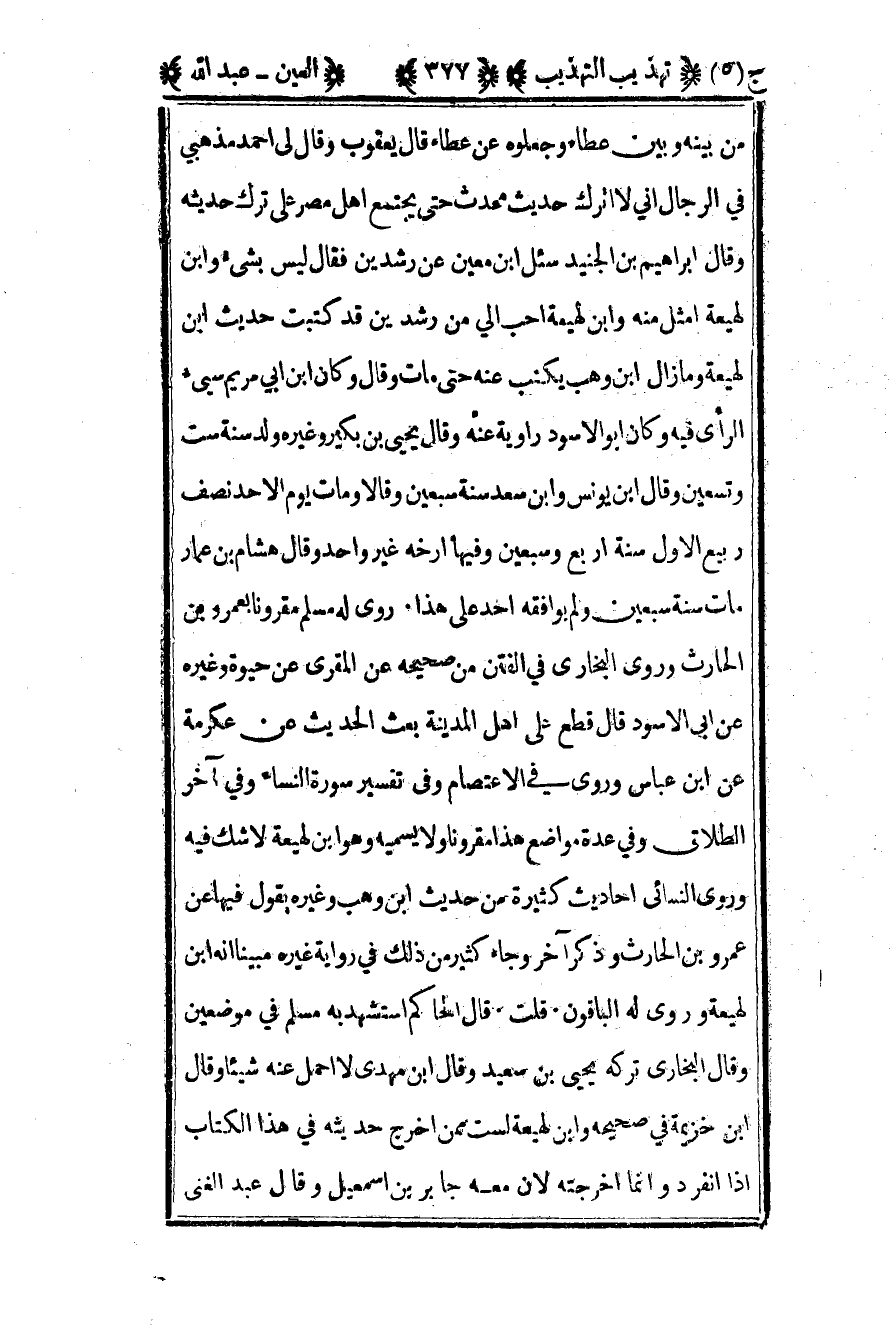 ج (٥) تهذيب التهذيب ٣٧٧ العين - عبد الله
من بينه وبين عطاء وجعلوه عن عطاء قال يعقوب وقال لى احمد مذهبي
في الرجال اني لا اترك حديث محدث حتى يجتمع اهل مصر على ترك حديثه
وقال ابراهيم بن الجنيد سئل ابن معين عن رشدين فقال ليس بشىء وابن
لهيعة امثل منه وابن لهيعة احب الي من رشدين قد كتبت حديث ابن
لهيعة وما زال ابن وهب يكتب عنه حتى مات وقال وكان ابن ابي مريم سيىء
الرأى فيه وكان ابو الاسود راوية عنه وقال يحيى بن بكير وغيره ولد سنة ست
وتسعين وقال ابن يونس وابن سعد سنة سبعين وقالا ومات يوم الاحد نصف
ربيع الاول سنة اربع وسبعين وفيها ارخه غير واحد وقال هشام بن عمار
مات سنة سبعين ولم يوافقه احد على هذا ٠ روى له مسلم مقرونا بعمرو بن
الحارث وروى البخارى في الفتن من صحيحه عن المقرى عن حيوة وغيره
عن ابي الاسود قال قطع على اهل المدينة بعث الحديث عن عكرمة
عن ابن عباس وروى في الاعتصام وفى تفسير سورة النساء وفي آخر
الطلاق وفي عدة مواضع هذا مقرونا ولا يسميه وهو ابن لهيعة لا شك فيه
وروى النسائى احاديث كثيرة من حديث ابن وهب وغيره يقول فيها عن
عمرو بن الحارث وذكر آخر وجاء كثير من ذلك في رواية غيره مبينا انه ابن
لهيعة وروى له الباقون ٠ قلت ٠ قال الحاكم استشهد به مسلم في موضعين
وقال البخارى تركه يحيى بن سعيد وقال ابن مهدى لا احمل عنه شيئا وقال
ابن خزيمة في صحيحه وابن لهيعة لست ممن اخرج حديثه في هذا الكتاب
اذا انفرد وانما اخرجته لان معه جابر بن اسمعيل وقال عبد الغنى